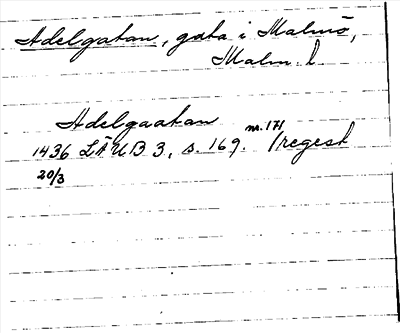 Adelgatan, gata i Malmö,
Malm. h
Adelgaatan
1436 LÄUB 3, s. 169. nr. 171 /regest
20/3